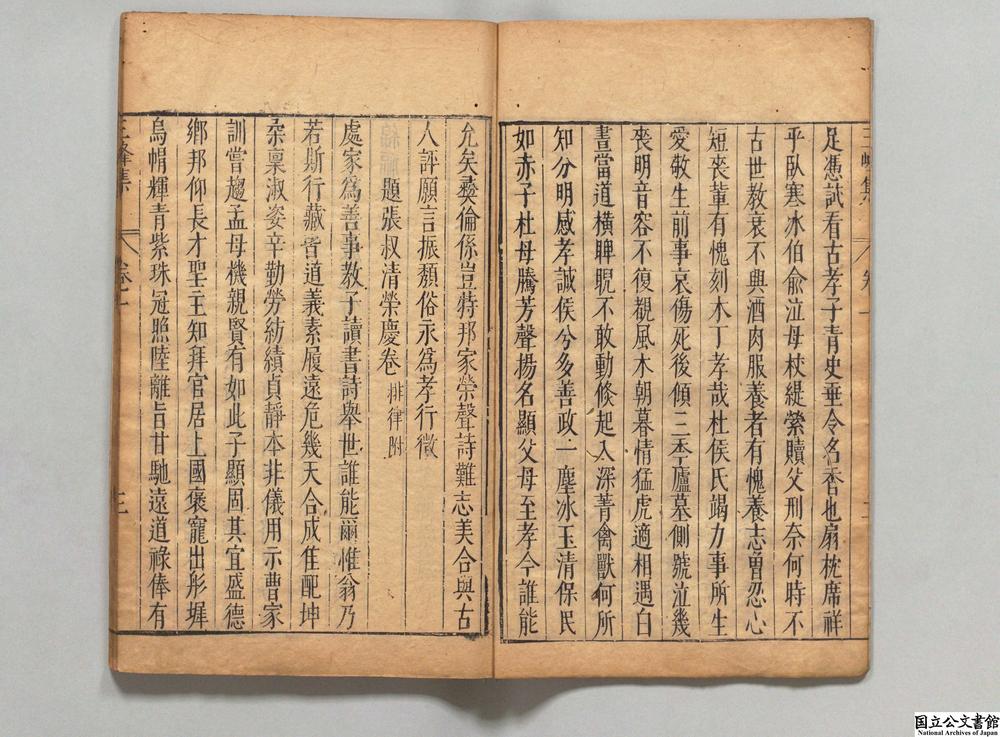 足憑試看古孝子青史垂令名香也扇枕席祥
乎臥寒冰伯俞泣母杖緹縈贖父刑奈何時不
古世教衰不興酒肉服養者有愧養志曽忍心
短喪輩有愧刻木丁孝哉杜侯氏竭力事所生
愛敬生前事哀傷死後傾三季廬墓側號泣幾
喪明音容不復覩風木朝暮情猛虎適相遇白
晝當道橫睥睨不敢動倏起入深菁禽獸何所
知分明感孝誠侯兮多善政一塵冰玉清保民
如赤子杜母騰芳聲揚名顯父母至孝今誰能
允矣彝倫係豈特邦家榮聲詩難志美合與古
人評願言振頽俗永爲孝行徵
題張叔清榮慶卷 排律附
處家爲善事教子讀書詩舉世誰能爾惟翁乃
若斯行藏皆道義素履遠危幾天合成隹配坤
柔稟淑姿辛勤勞紡績貞靜本非儀用示曹家
訓嘗趨孟母機親賢有如此子顯固其宜盛德
鄉邦仰長才聖主知拜官居上國褒寵出彤墀
烏帽輝青紫珠冠照陸離旨甘馳遠道祿俸有
國立公文書館
National Archives of Japan